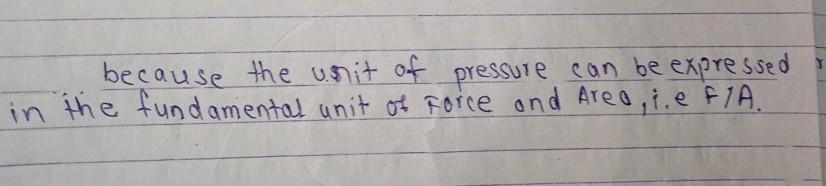 because the unit of pressure can be expressed
in the fundamental unit of Force and Area, i.e F/A.